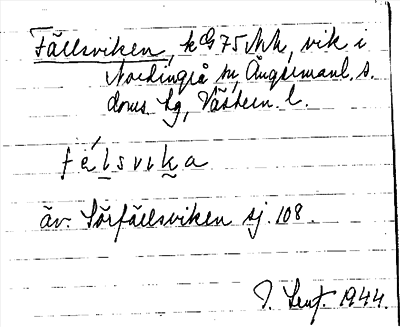 Fällsviken, kG 75 NK, vik i
Nordingrå sn, Ångermanl. s.
doms. lg, Västern. l.
félsvika
äv. Sörfällsviken sj. 108.
1944.